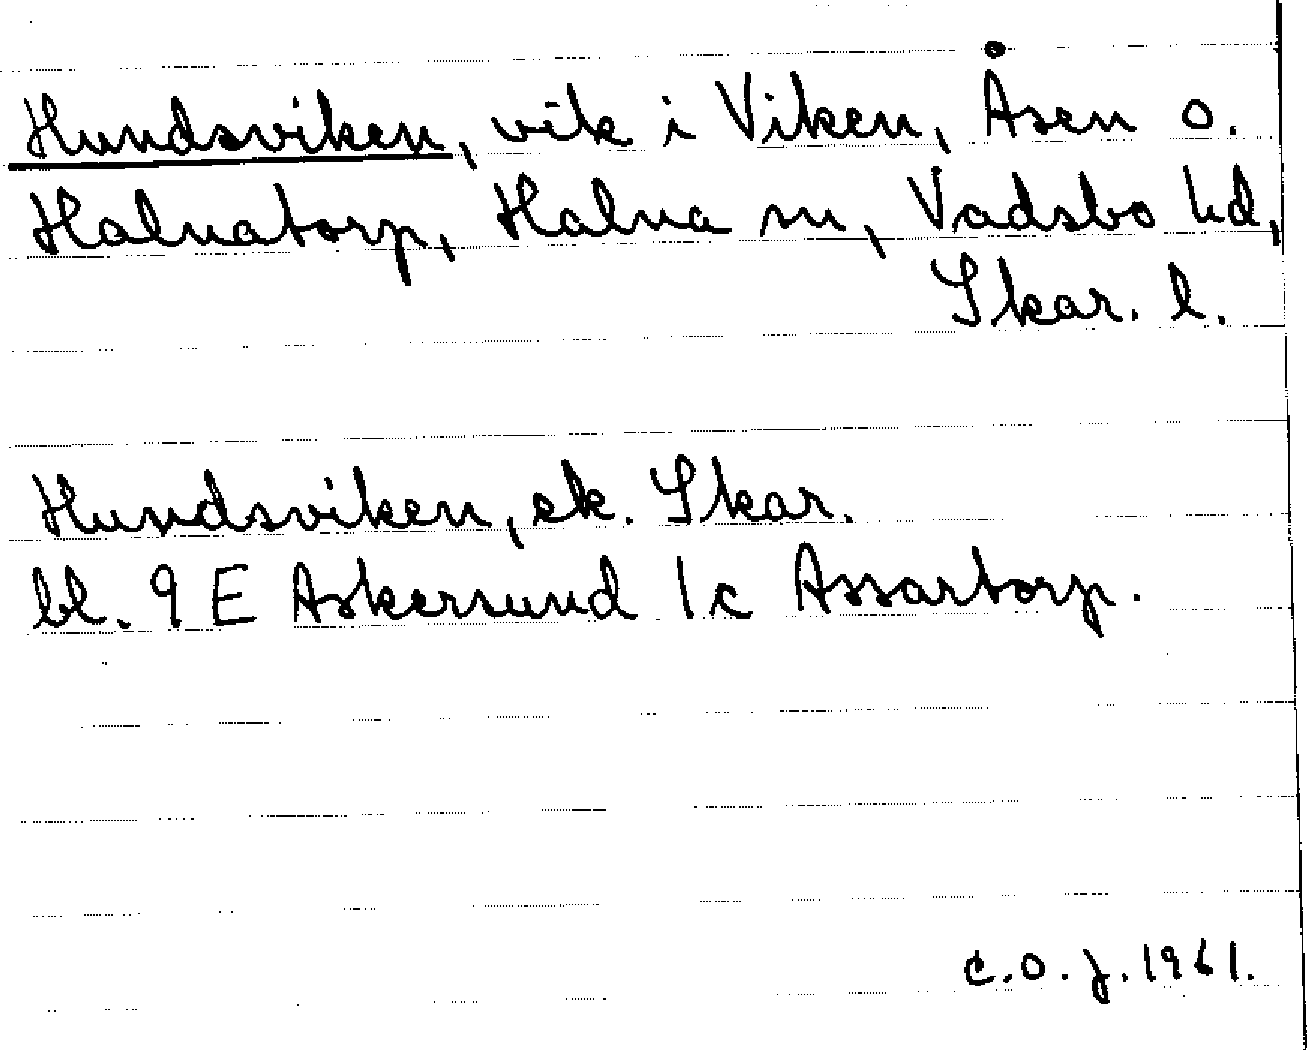 Hundsviken, vik i Viken, Åsen o.
Halnatorp, Halna sn, Vadsbo hd,
Skar. l.
Hundsviken, ek. Skar.
bl. 9 E Askersund 1c Assartorp.
C.O.J. 1961.